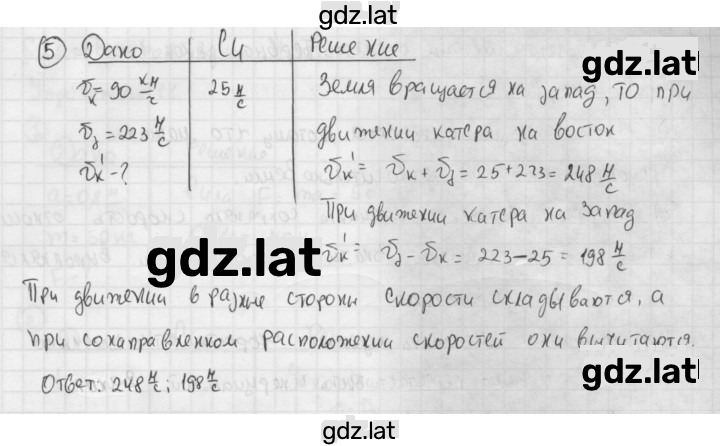 gdz.lat
5 Дано СИ Решение
gdz.lat
υк = 90 км/ч 25 м/с Земля вращается на запад, то при
υз = 223 м/с движении катера на восток
υк' - ? υк' = υк + υз = 25 + 223 = 248 м/с
При движении катера на запад
gdz.lat
υк' = υз - υк = 223 - 25 = 198 м/с
При движении в разные стороны скорости складываются, а
при сонаправленном расположении скоростей они вычитаются.
gdz.lat
Ответ: 248 м/с; 198 м/с
gdz.lat